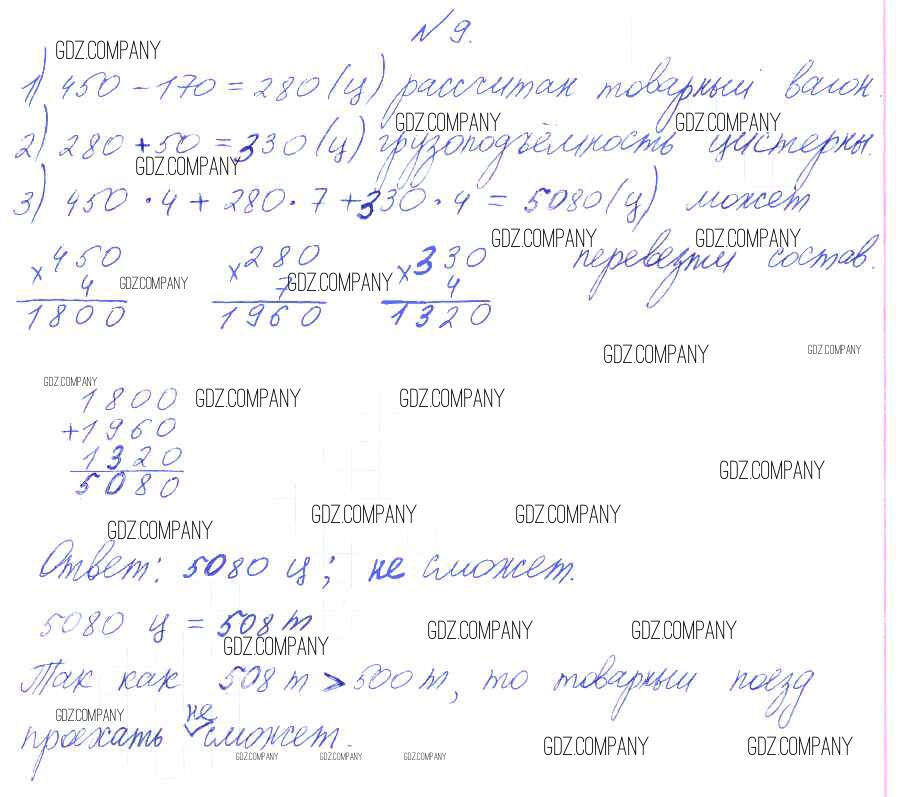 № 9.
GDZ.COMPANY
1) 450 - 170 = 280 (ц) рассчитан товарный вагон.
GDZ.COMPANY GDZ.COMPANY
2) 280 + 50 = 330 (ц) грузоподъёмность цистерны.
GDZ.COMPANY
3) 450 · 4 + 280 · 7 + 330 · 4 = 5080 (ц) может
GDZ.COMPANY GDZ.COMPANY
перевезти состав.
× 450 × 280 × 330
4 7 4
GDZ.COMPANY GDZ.COMPANY
1800 1960 1320
GDZ.COMPANY GDZ.COMPANY
GDZ.COMPANY
1800
GDZ.COMPANY GDZ.COMPANY
+1960
1320
GDZ.COMPANY
5080
GDZ.COMPANY GDZ.COMPANY
GDZ.COMPANY
Ответ: 5080 ц; не сможет.
5080 ц = 508 т
GDZ.COMPANY GDZ.COMPANY
GDZ.COMPANY
Так как 508 т > 500 т, то товарный поезд
GDZ.COMPANY
проехать не сможет.
GDZ.COMPANY GDZ.COMPANY
GDZ.COMPANY GDZ.COMPANY GDZ.COMPANY